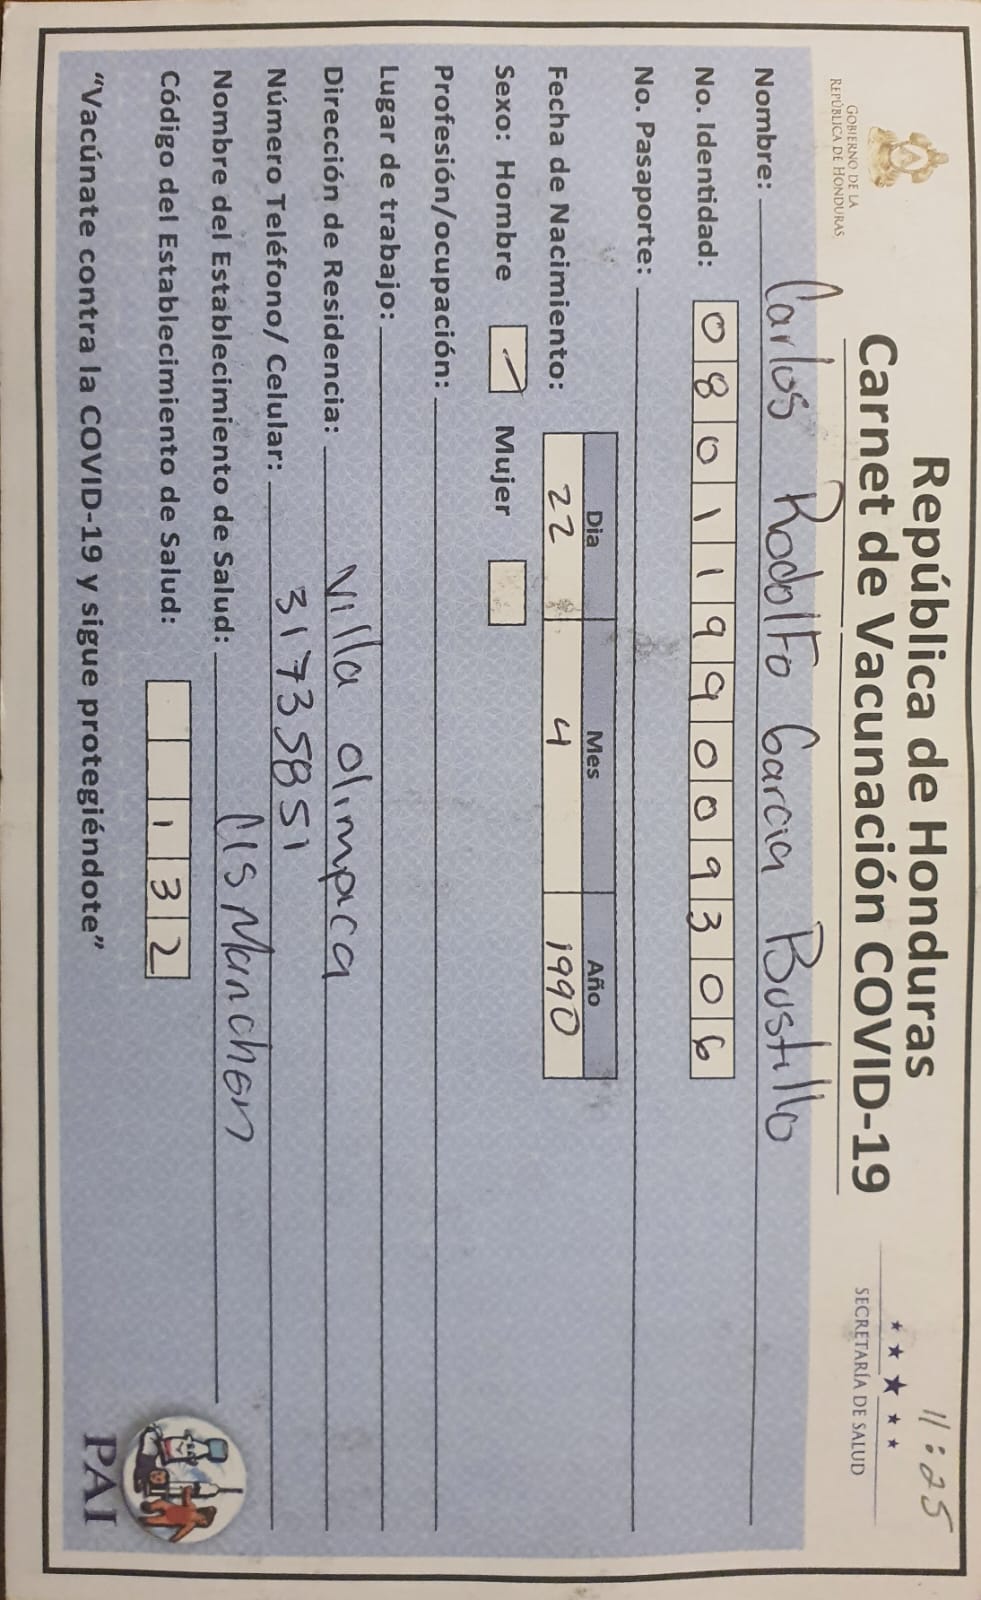 11:25
República de Honduras
Carnet de Vacunación COVID-19
GOBIERNO DE LA
REPÚBLICA DE HONDURAS
SECRETARÍA DE SALUD
Nombre: Carlos Rodolfo Garcia Bustillo
No. Identidad: 0801199009306
No. Pasaporte:
Dia Mes Año
Fecha de Nacimiento: 22 4 1990
Sexo: Hombre ✓ Mujer
Profesión/ocupación:
Lugar de trabajo:
Dirección de Residencia: Villa olimpica
Número Teléfono/ Celular: 31735851
Nombre del Establecimiento de Salud: CIS Manchen
Código del Establecimiento de Salud: 132
"Vacúnate contra la COVID-19 y sigue protegiéndote"
PAI